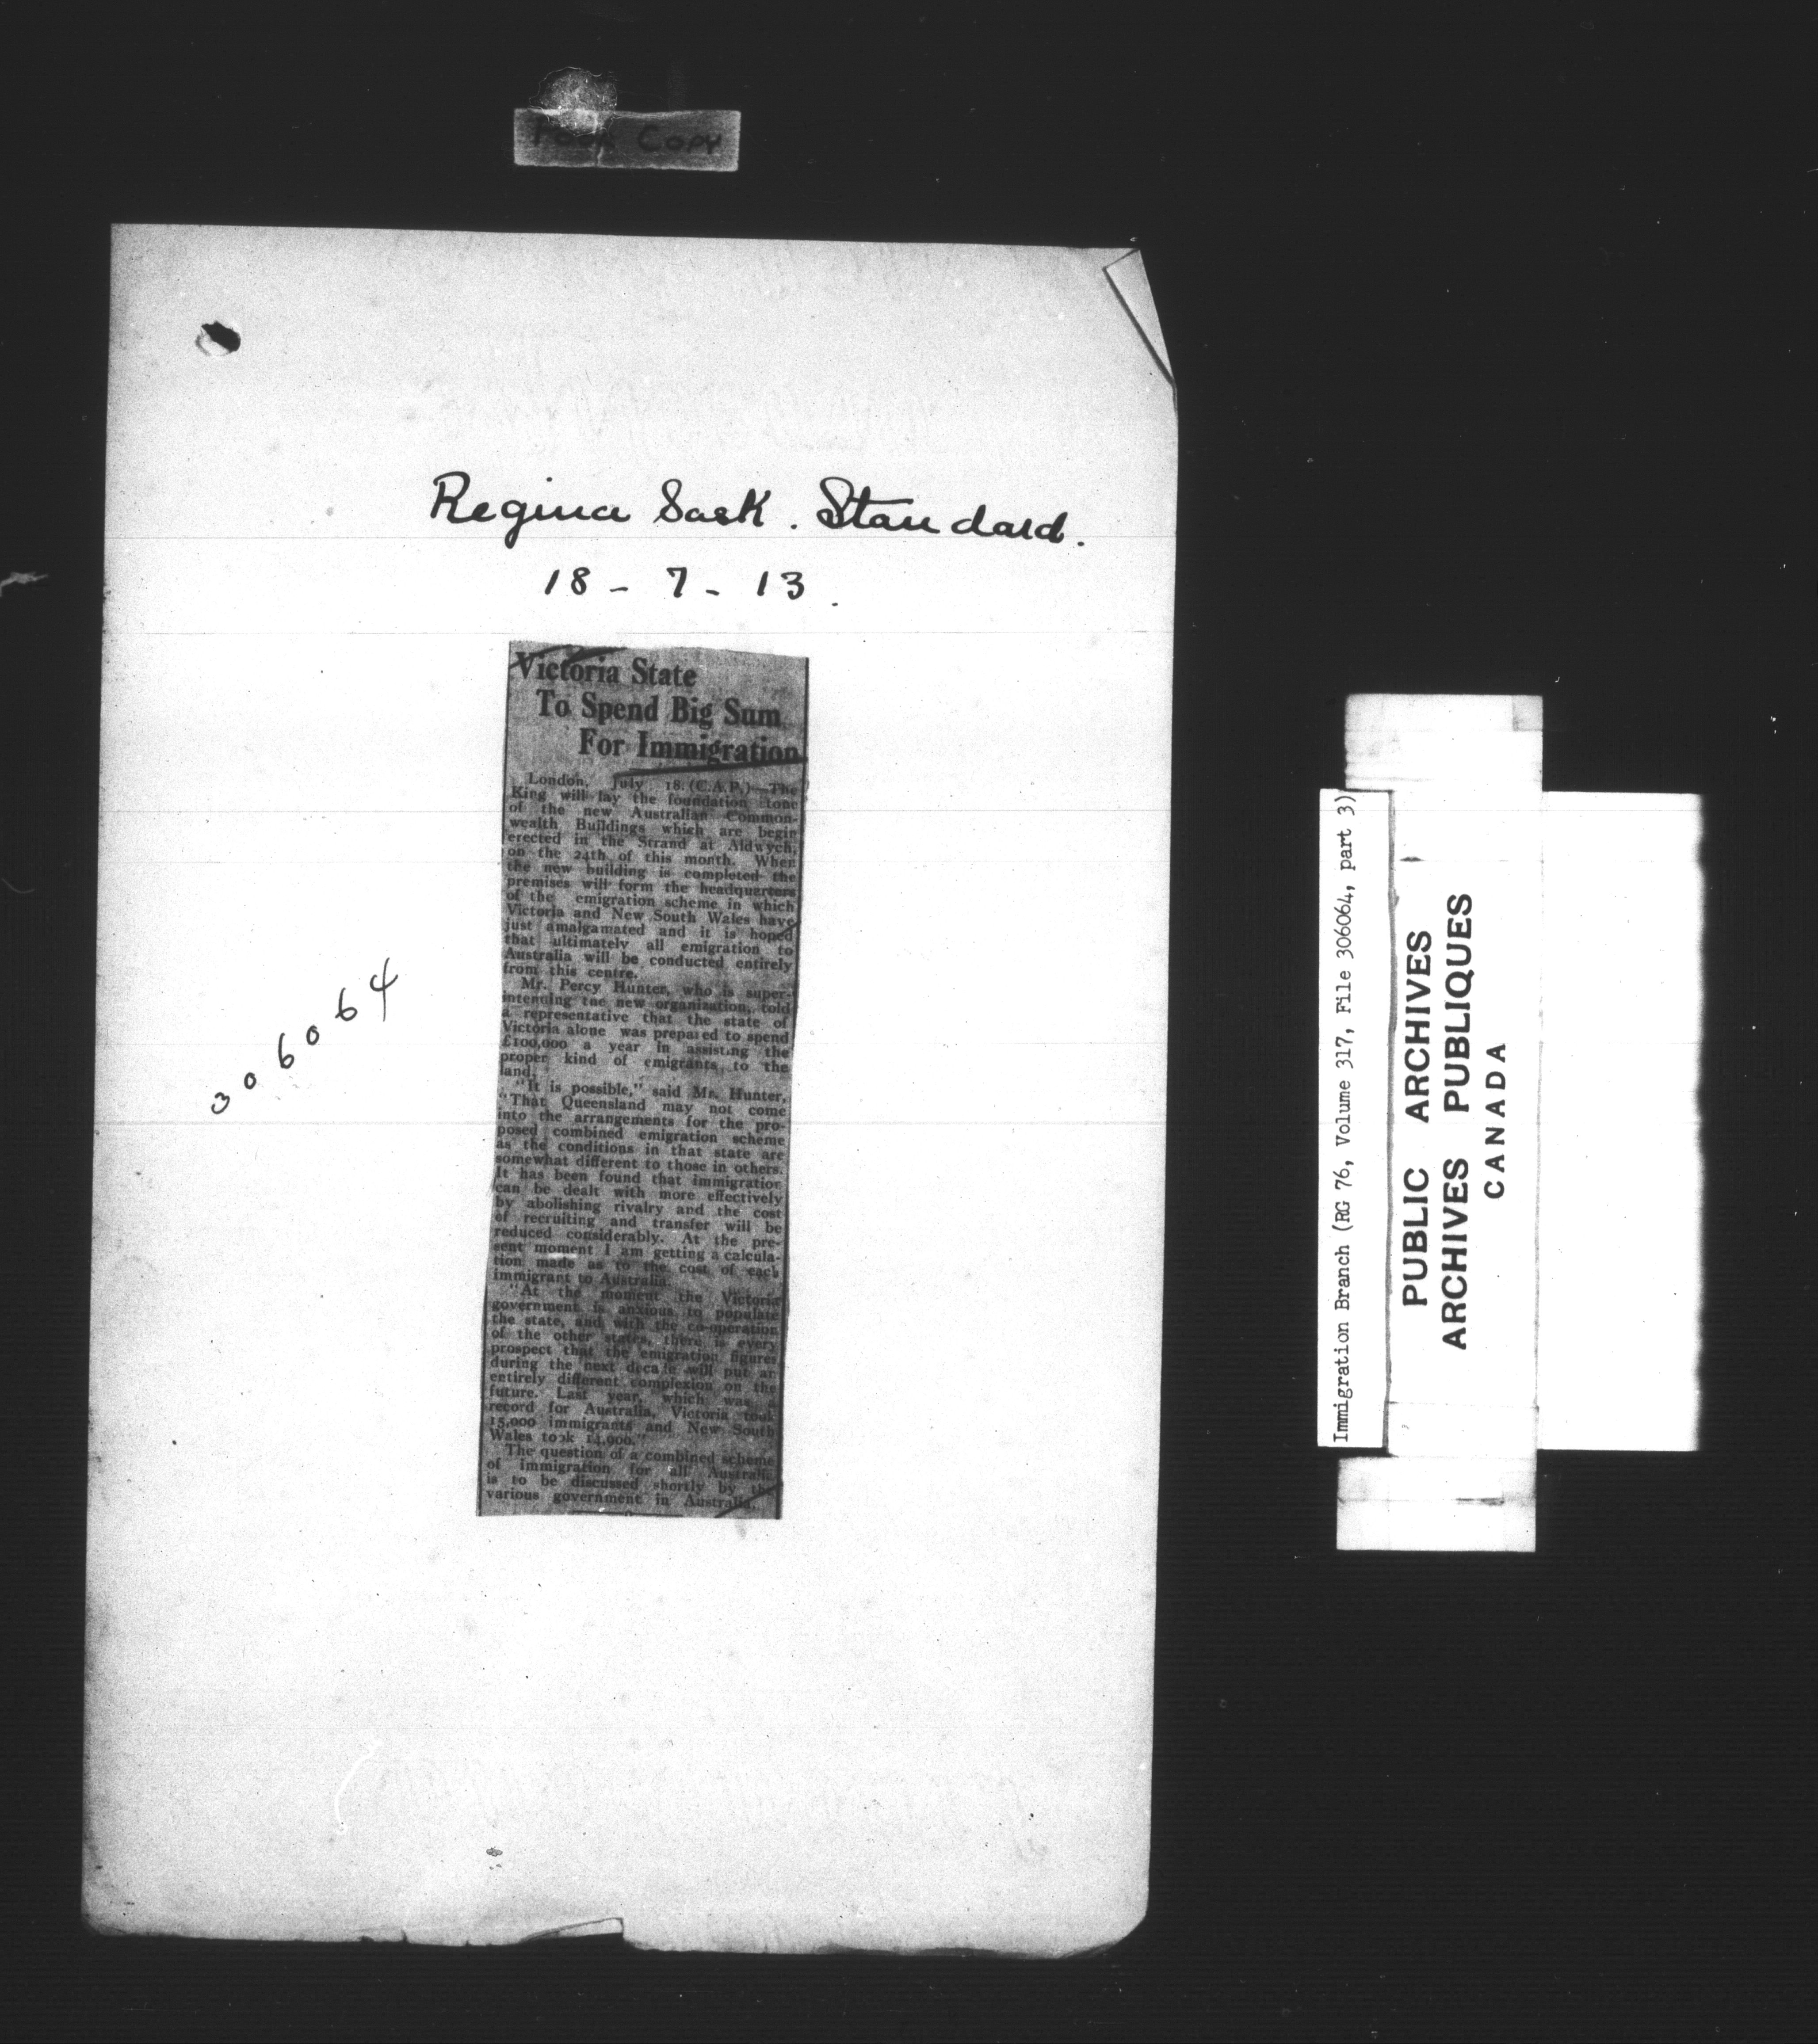 Poor Copy
Regina Sask. Standard.
18 - 7 - 13.
Victoria State
To Spend Big Sum
For Immigration
London, July 18. (C.A.P.)—The
King will lay the foundation stone
of the new Australian Common-
wealth Buildings which are begin
erected in the Strand at Aldwych,
on the 24th of this month. When
the new building is completed the
premises will form the headquarters
of the emigration scheme in which
Victoria and New South Wales have
just amalgamated and it is hoped
that ultimately all emigration to
Australia will be conducted entirely
from this centre.
Mr. Percy Hunter, who is super-
intending the new organization, told
a representative that the state of
Victoria alone was prepared to spend
£100,000 a year in assisting the
proper kind of emigrants to the
land.
"It is possible," said Mr. Hunter,
"That Queensland may not come
into the arrangements for the pro-
posed combined emigration scheme
as the conditions in that state are
somewhat different to those in others.
It has been found that immigration
can be dealt with more effectively
by abolishing rivalry and the cost
of recruiting and transfer will be
reduced considerably. At the pre-
sent moment I am getting a calcula-
tion made as to the cost of each
immigrant to Australia.
"At the moment the Victoria
government is anxious to populate
the state, and with the co-operation
of the other states, there is every
prospect that the emigration figures
during the next decade will put an
entirely different complexion on the
future. Last year, which was a
record for Australia, Victoria took
15,000 immigrants and New South
Wales took
The question of a combined scheme
of immigration for all Australia
is to be discussed shortly by the
various government in Australia.
306064
Immigration Branch (RG 76, Volume 317, File 306064, part 3)
PUBLIC ARCHIVES
ARCHIVES PUBLIQUES
CANADA